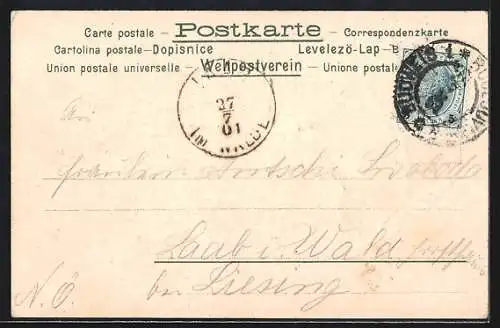 Carte postale – Postkarte – Correspondenzkarte
Cartolina postale–Dopisnice Levelezö-Lap – B
Union postale universelle – Weltpostverein – Unione postale
BUDWEIS 1
27
7
01
WALDE
Fräulein Svoboda
Laab i. Wald
N. Ö. bei Liesing